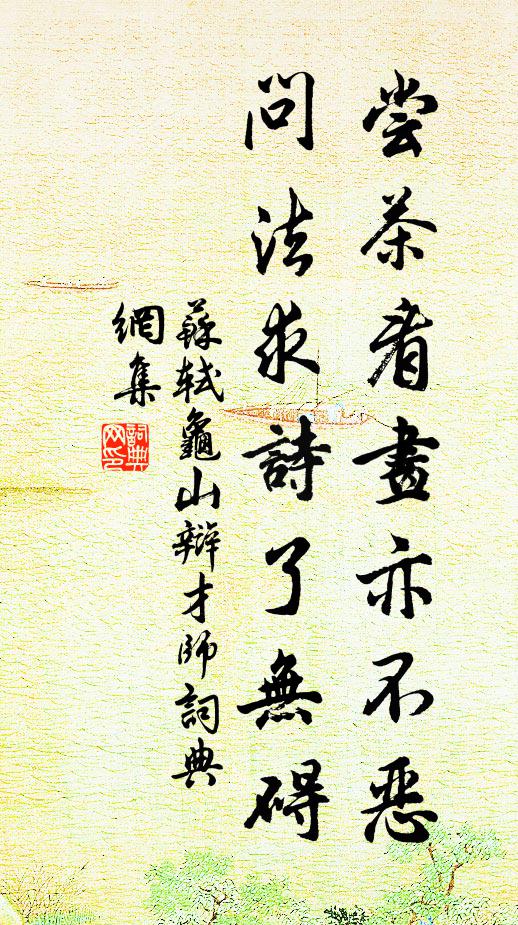 尝茶看畫亦不恶
問法求詩了無碍
蘇軾龜山辯才師詞典
網集
詞典
网印